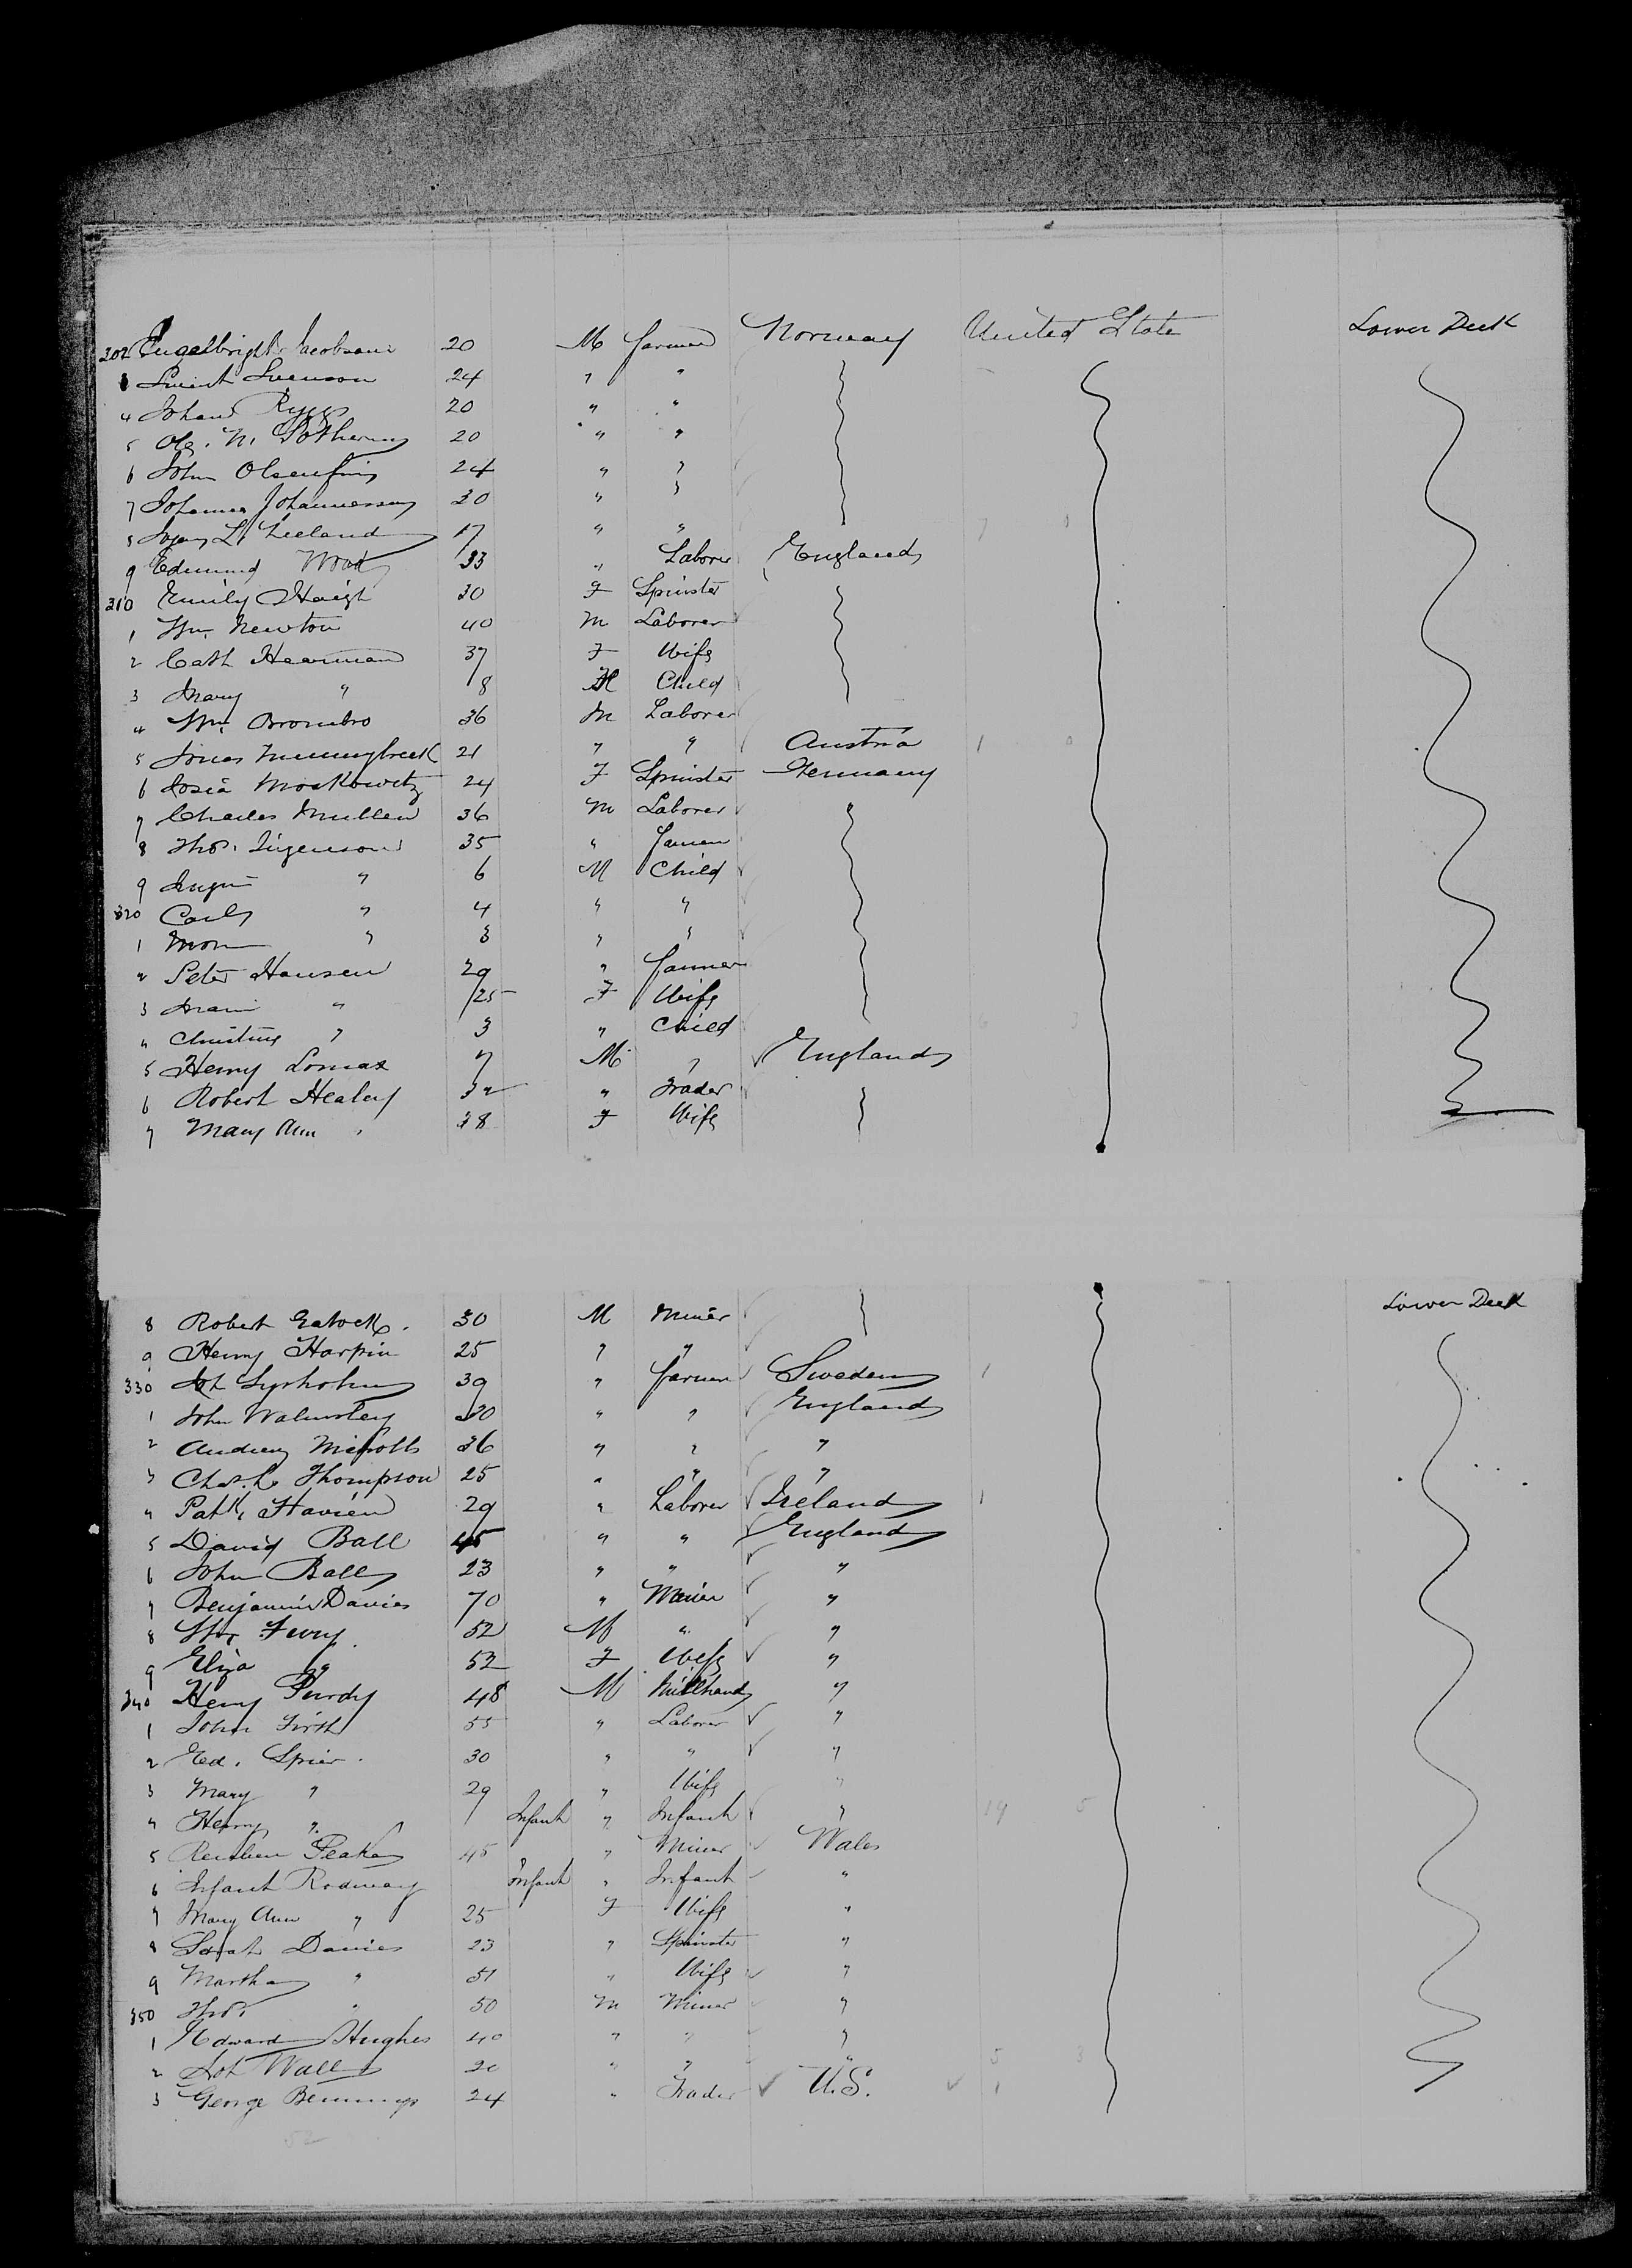 302 Engelbright Jacobsen 20 M farmer Norway United State Lower Deck
3 Svenson 24 " "
4 Johan Rygg 20 " "
5 Ole. N. 20 " "
6 John 24 " "
7 Johannes Johannessen 30 " "
8 L. 17 " "
9 Edmund Wood 33 " Laborer England
310 Emily Haigh 30 F Spinster
1 Wm. Newton 40 M Laborer
2 Cath Hearman 37 F Wife
3 Mary " 8 Child
4 Wm. Brombro 36 M Laborer
5 21 " " Austria 1 0
6 Moskowitz 24 F Spinster Germany
7 Charles Mullen 36 M Laborer "
8 Thos. 35 " farmer
9 " 6 M Child
320 Carl " 4 " "
1 " 3 " "
2 Peter Hansen 29 " farmer
3 " 25 F Wife
4 Christine " 3 " Child
5 Henry Lomax 7 M " England
6 Robert Healey 32 " Trader
7 Mary Ann " 28 F Wife
8 Robert Eatock. 30 M Miner Lower Deck
9 Henry Harpin 25 " "
330 39 " farmer Sweden 1
1 John Walmsley 30 " " England
2 Andrew 36 " " "
3 Chas. Thompson 25 " " "
4 Patk. 29 " Laborer Ireland 1
5 David Ball 45 " " England
6 John Ball 23 " " "
7 Benjamin Davies 70 " Miner "
8 Wm. 52 M " "
9 Eliza " 52 F Wife "
340 Henry Purdy 48 M Millhand "
1 John Firth 55 " Laborer "
2 Ed. Spier. 30 " " "
3 Mary " 29 " Wife "
4 Henry " Infant " Infant " 19 5
5 Reuben Peake 45 " Miner Wales
6 Infant Rodway Infant " Infant "
7 Mary Ann " 25 F Wife "
8 Sarah Davies 23 " Spinster "
9 Martha " 51 " Wife "
350 Thos. " 50 M Miner "
1 Edward Hughes 40 " " "
2 Wall 20 " " " 5 3
3 George 24 " Trader U.S. 1
52